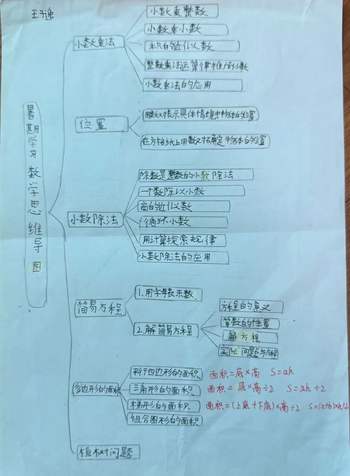 小数乘整数
小数乘小数
小数乘法
积的近似数
整数乘法运算律推广到小数
小数乘法的应用
位置
在方格纸上用数对确定物体的位置
暑期学习数学思维导图
除数是整数的小数除法
一个数除以小数
商的近似数
小数除法
循环小数
用计算器探索规律
小数除法的应用
简易方程
1.用字母表示数
2.解简易方程
方程的意义
等式的性质
解方程
实际问题与方程
多边形的面积
平行四边形的面积
面积=底×高 S=ah
三角形的面积
面积=底×高÷2 S=ah÷2
梯形的面积
面积=(上底+下底)×高÷2
组合图形的面积
植树问题